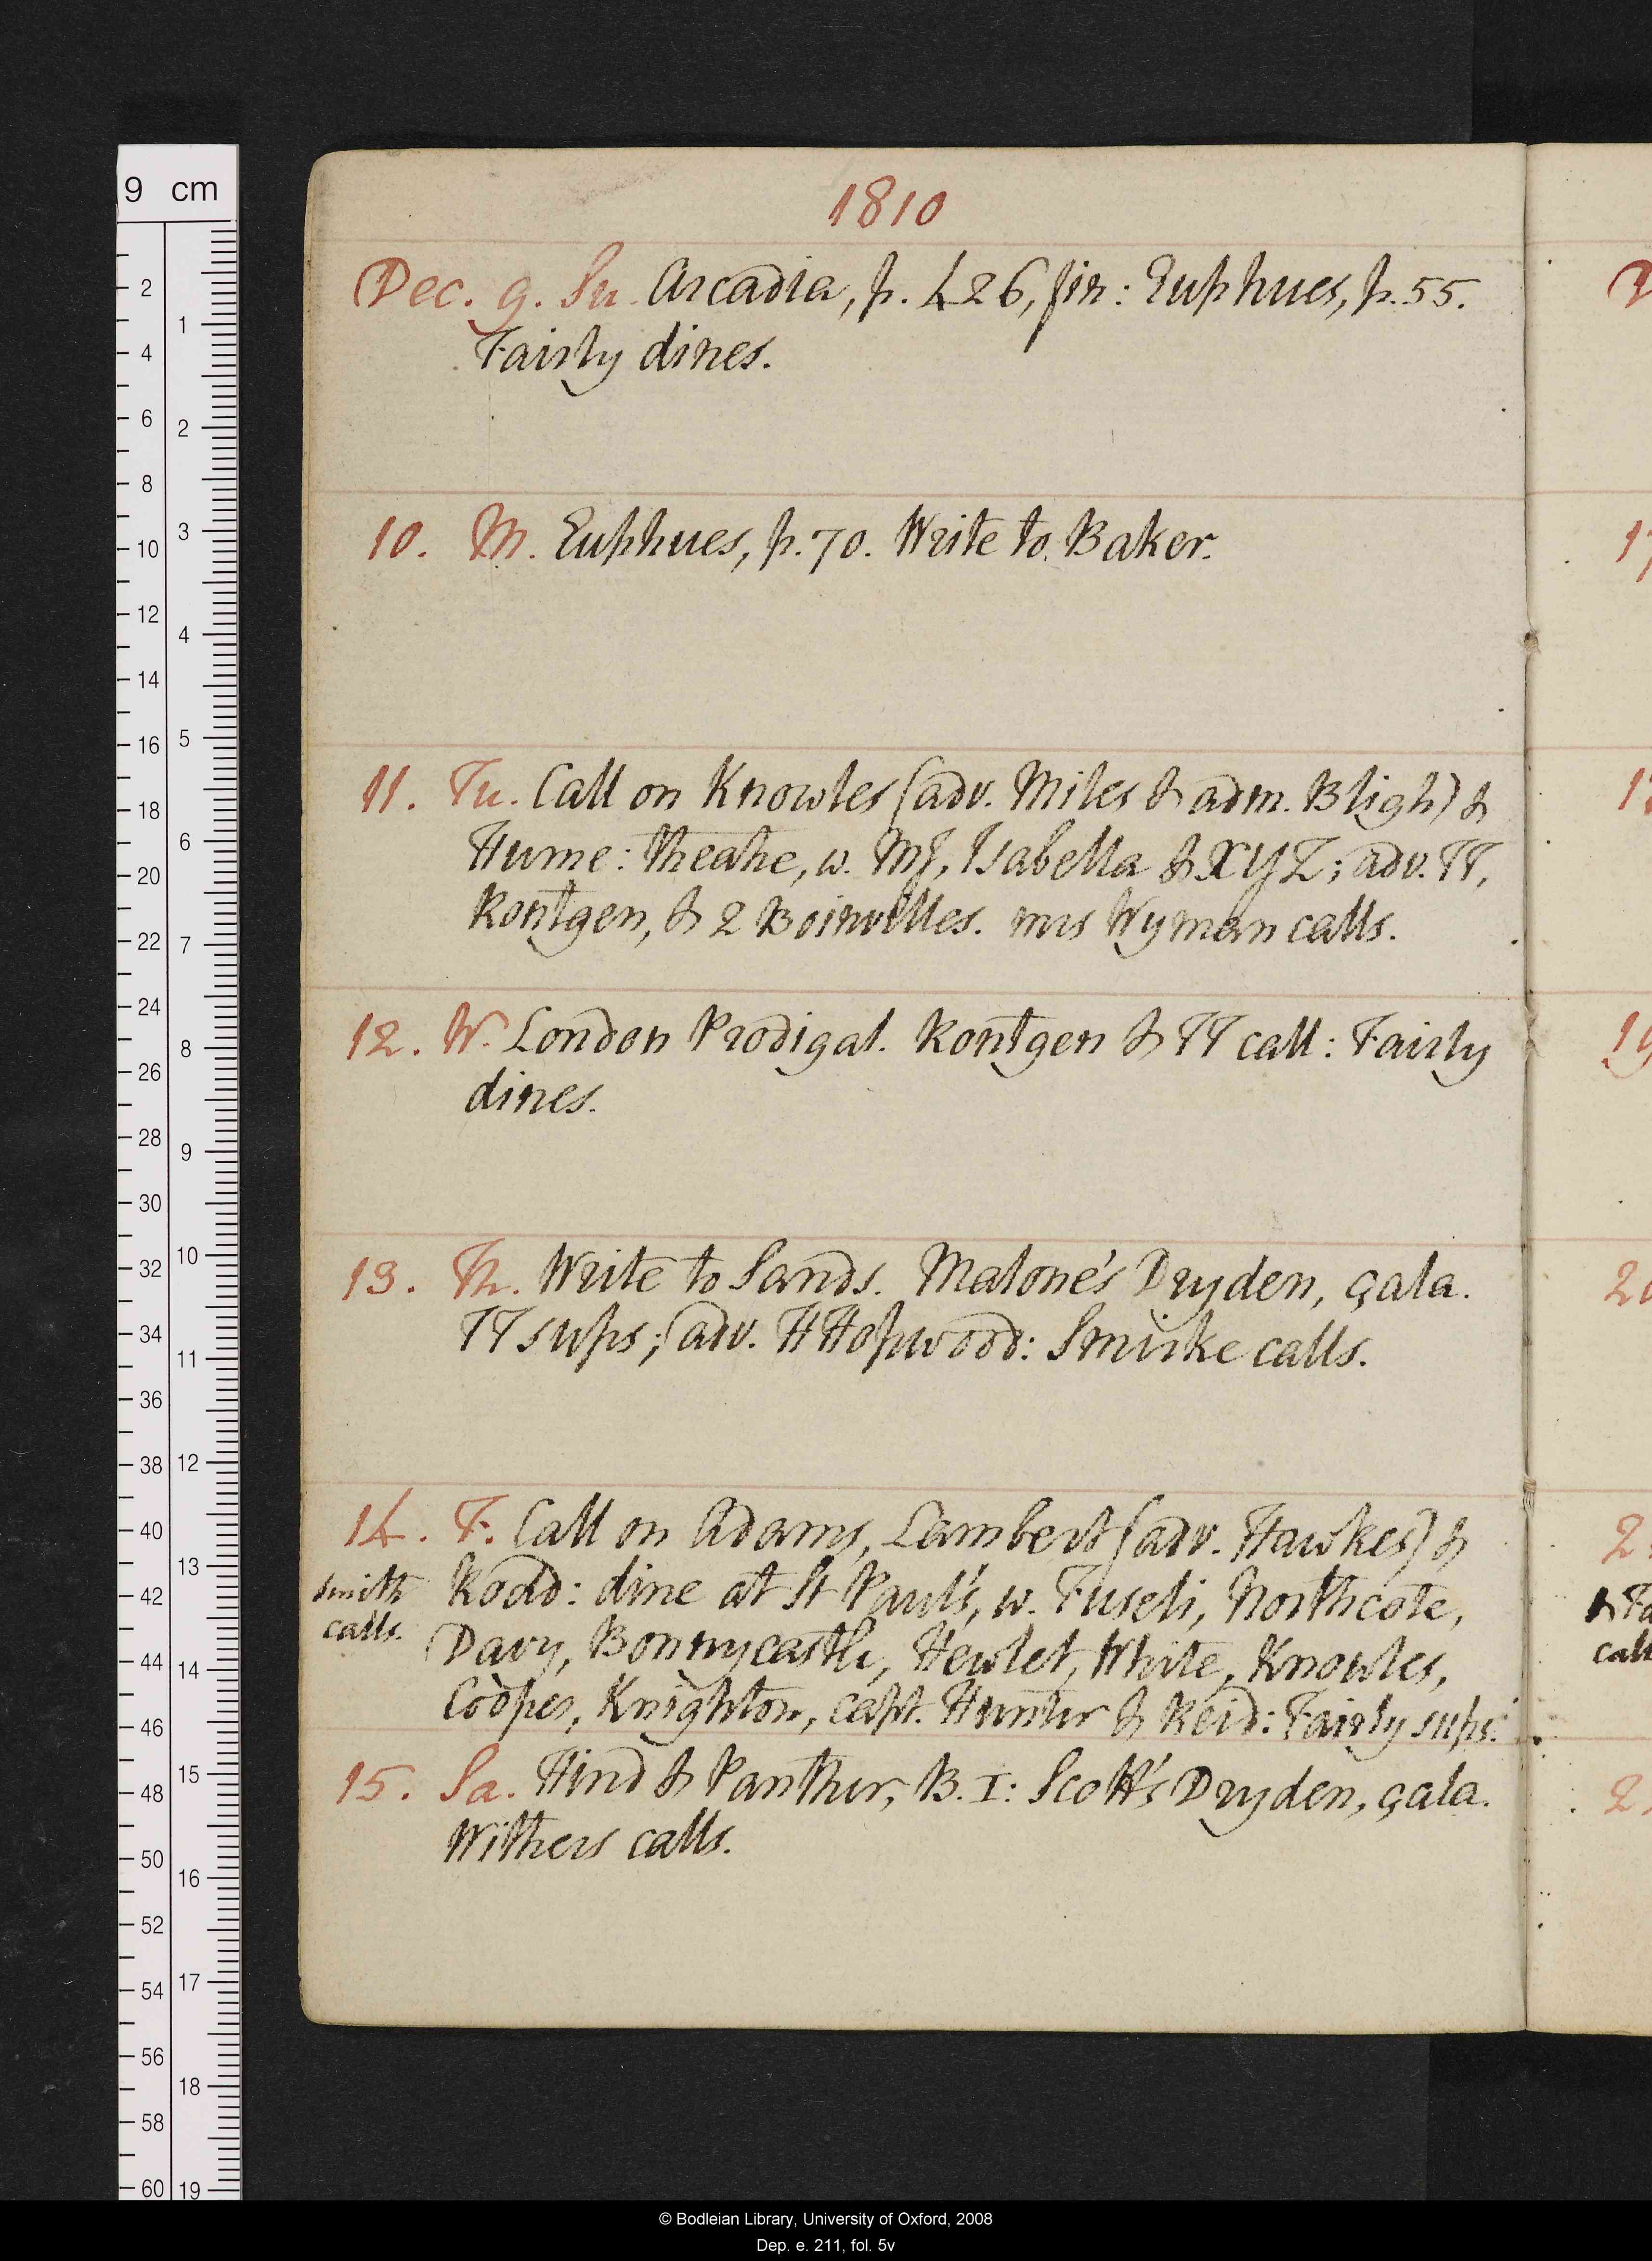 1810
Dec. 9. Su. Arcadia, p. 426, fin: Euphues, p. 55.
Fairly dines.
10. M. Euphues, p. 70. Write to Baker.
11. Tu. Call on Knowles (adv. Miles & adm. Bligh) &
Hume: theatre, w. MJ, Isabella & XYZ; adv. TT,
Rontgen, & 2 Boinvilles. mrs Wyman calls.
12. W. London Prodigal. Rontgen & TT call: Fairly
dines.
13. Th. Write to Sands. Malone's Dryden, çala.
TT sups; (adv. HHopwood: Smirke calls.
14. F. Call on Adams, Lambert (adv. Hawkes) &
Smith
calls.
Rodd: dine at St Paul's, w. Fuseli, Northcote,
Davy, Bonnycastle, Hewlet, White, Knowles,
Cooper, Knighton, capt. Hunter & Reid: Fairly sups.
15. Sa. Hind & Panther, B. I: Scott's Dryden, çala.
Withers calls.
9 cm
2
4
6
8
10
12
14
16
18
20
22
24
26
28
30
32
34
36
38
40
42
44
46
48
50
52
54
56
58
60
1
2
3
4
5
6
7
8
9
10
11
12
13
14
15
16
17
18
19
© Bodleian Library, University of Oxford, 2008
Dep. e. 211, fol. 5v